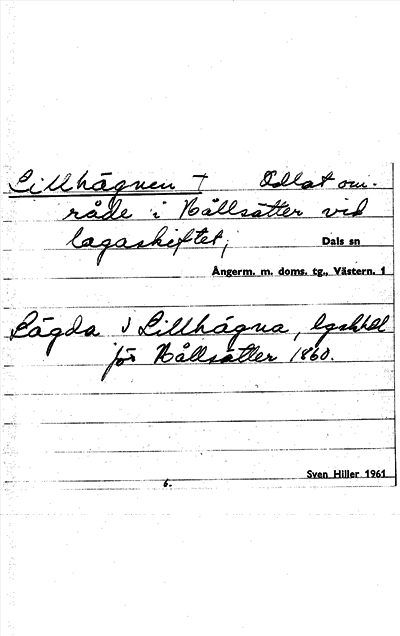 Lillhägnen † Odlat om-
råde i Hållsätter vid
lagaskiftet;
Dals sn
Ångerm. m. doms. tg., Västern. 1
Lägda i Lillhägna, lgskhdl
för Hållsätter 1860.
Sven Hiller 1961
6.